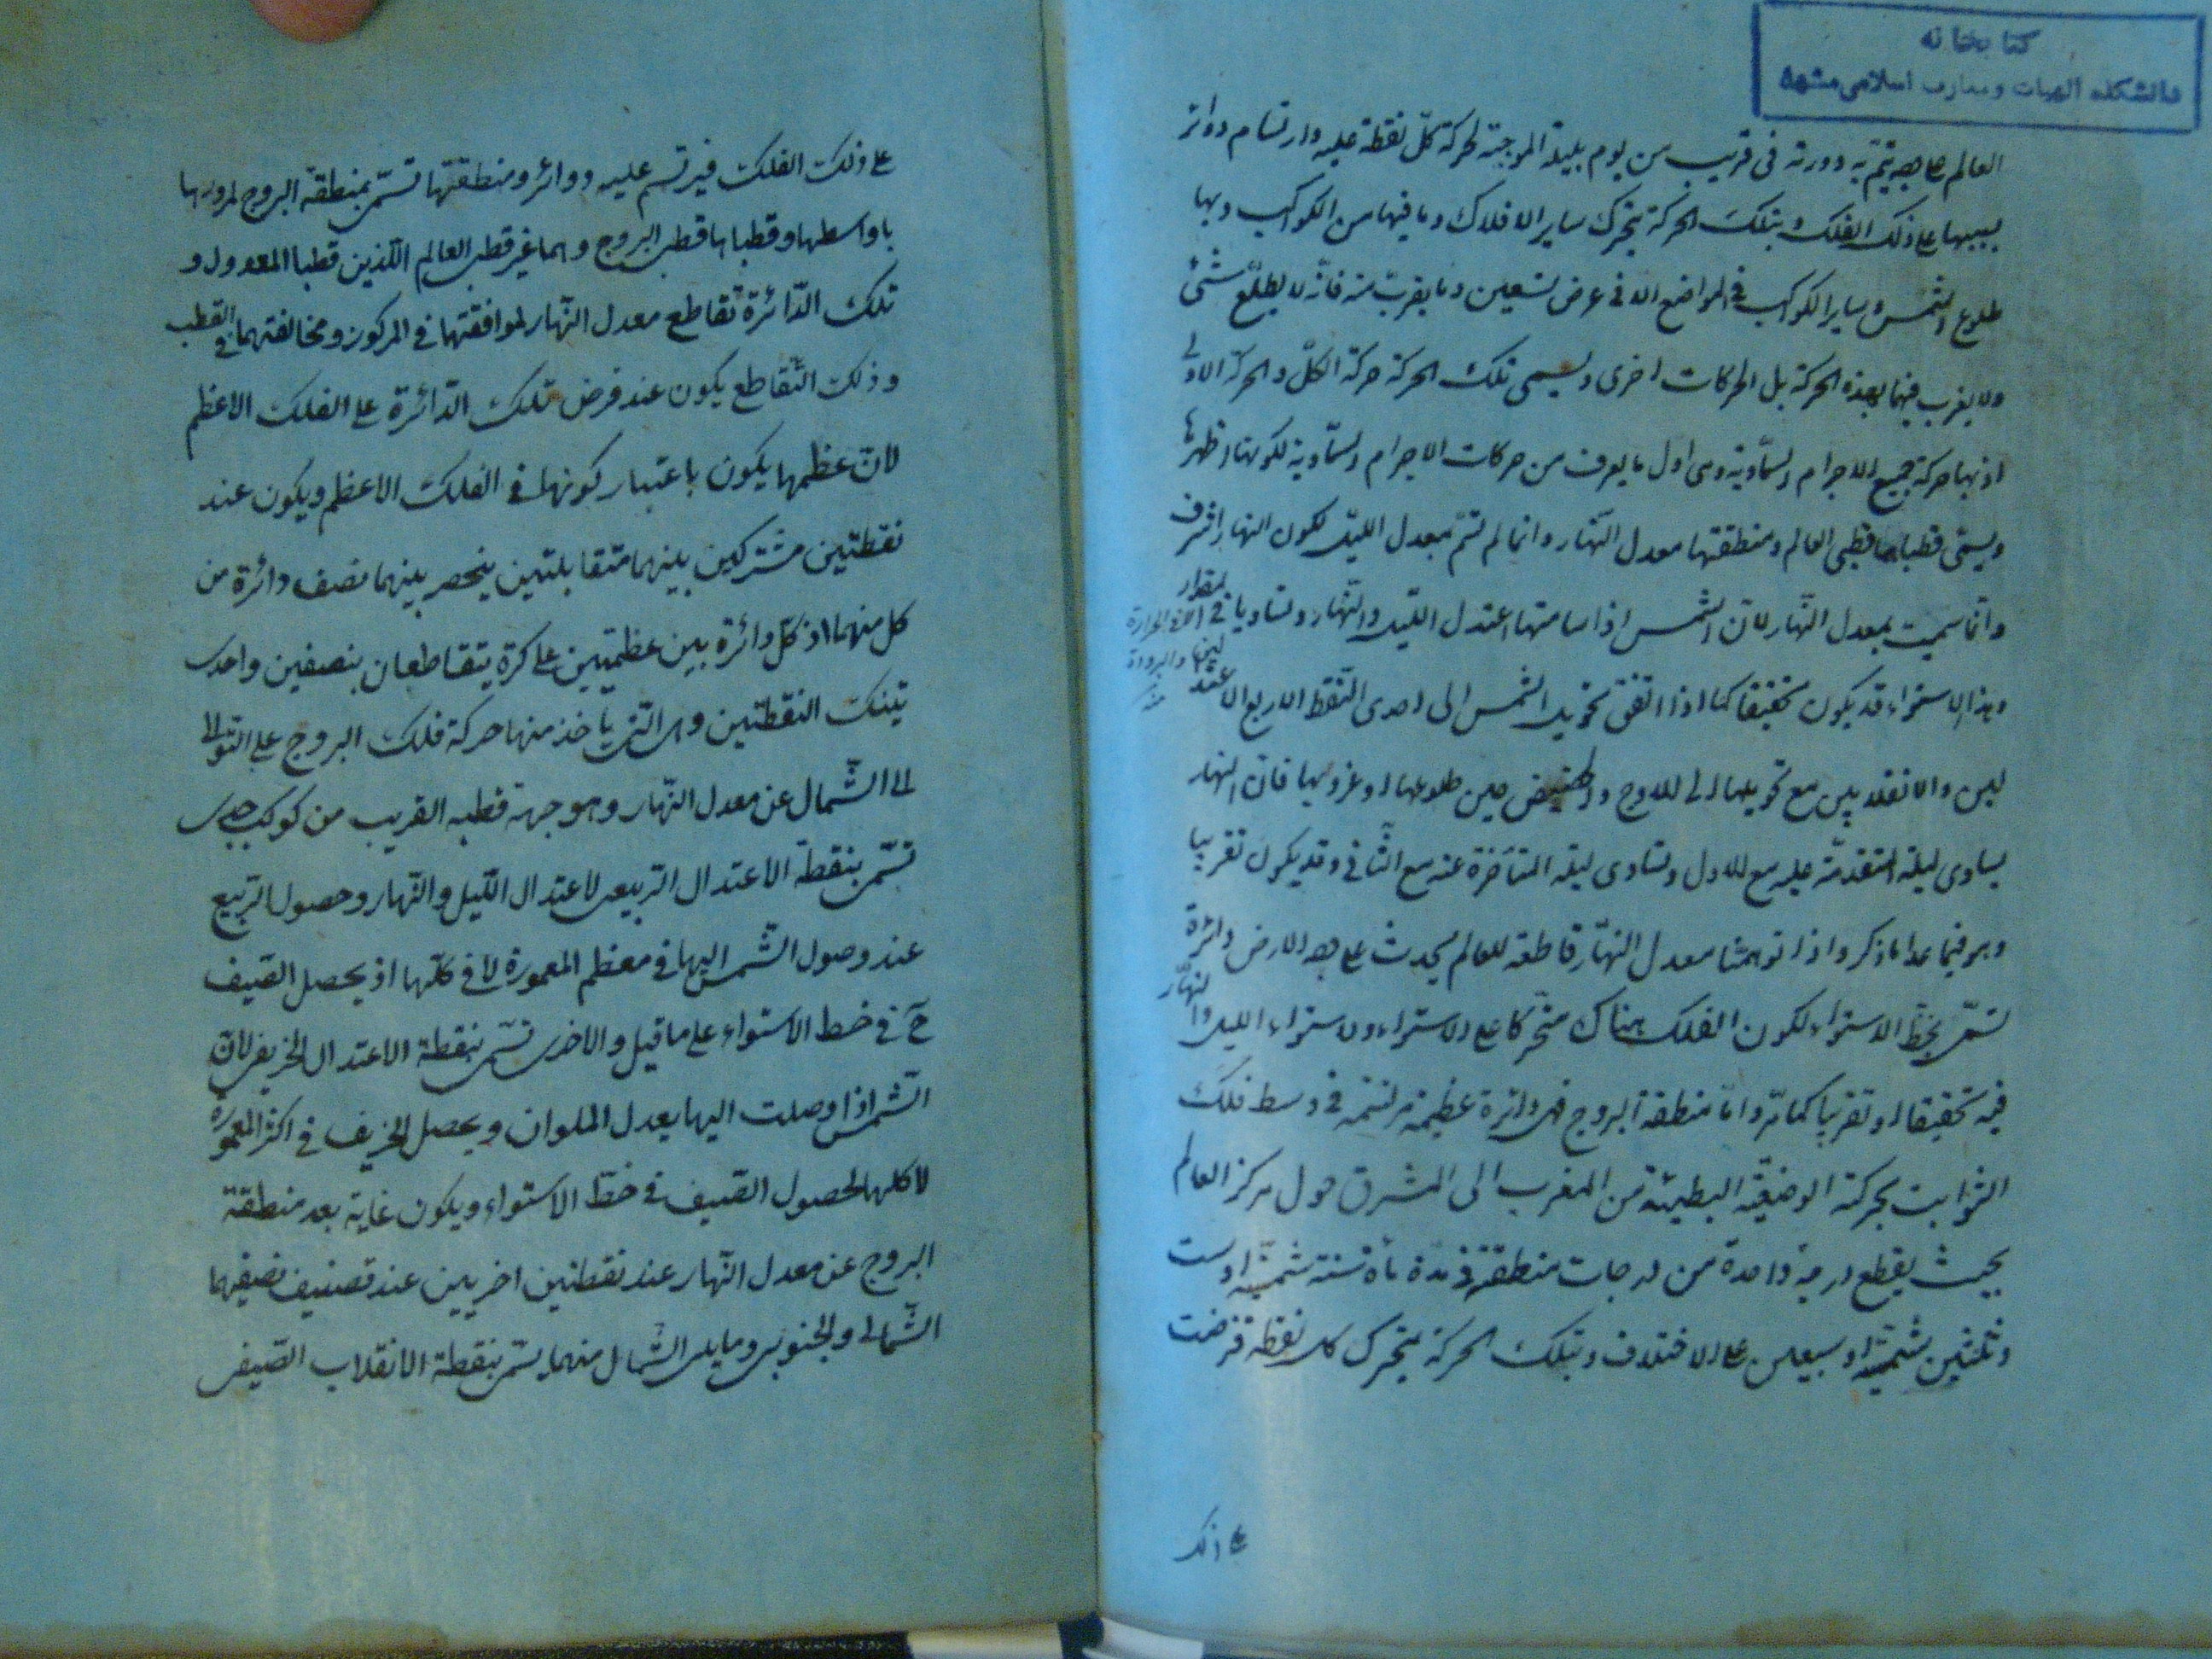 كتابخانه
دانشكده الهيات و معارف اسلامى مشهد
العالم على وجه يتم به دورته فى قريب من يوم بليلة الموجبة لحركة كل نقطة عليه وارتسام دوائر
بسببها على ذلك الفلك وبتلك الحركة يتحرك ساير الافلاك وما فيها من الكواكب وبها
طلوع الشمس وساير الكواكب فى المواضع الا فى عرض تسعين وما يقرب منه فانه لا يطلع شئ
ولا يغرب فيها بهذه الحركة بل الحركات اخرى ويسمى تلك الحركة حركة الكل والحركة الاولى
اذ بها حركة جميع الاجرام السماوية وهى اول ما يعرف من حركات الاجرام السماوية لكونها اظهرها
ويسمى قطباها قطبى العالم ومنطقتها معدل النهار وانما لم تسم بمعدل الليل لكون النهار اشرف
وانما سميت بمعدل النهار لان الشمس اذا سامتها اعتدل الليل والنهار وتساويا فى المقدار
وهذا الاستواء قد يكون تحقيقا كما اذا اتفق تحويل الشمس الى احدى النقط الاربع الاعتد
لين والانقلابين مع تحويلها الى الاوج والحضيض حين طلوعها او غروبها فان النهار
يساوى ليلة المتقدمة عليه مع الاول وتساوى ليلة المتاخرة عنه مع الثانى وقد يكون تقريبا
وهو فيما عدا ما ذكر واذا توهمنا معدل النهار قاطعة للعالم يحدث على وجه الارض دائرة
تسمى بخط الاستواء لكون الفلك هناك متحركا على الاستواء ولاستواء الليل والنهار
فيه تحقيقا او تقريبا كما مر واما منطقة البروج فهى دائرة عظيمة مرتسمة فى وسط فلك
الثوابت بحركته الوضعية البطيئة من المغرب الى المشرق حول مركز العالم
بحيث يقطع درجة واحدة من درجات منطقته فى مدة مأة سنة شمسية او ست
وثلثين شمسية او سبعين على الاختلاف وبتلك الحركة يتحرك كل نقطة فرضت
على ذلك
على ذلك الفلك فيرتسم عليه دوائر ومنطقتها تسمى بمنطقة البروج لمرورها
باواسطها وقطباها قطبى البروج وهما غير قطبى العالم اللذين قطبا المعدول و
تلك الدائرة تقاطع معدل النهار لموافقتها فى المركز ومخالفتهما فى القطب
وذلك التقاطع يكون عند فرض تلك الدائرة على الفلك الاعظم
لان عظمها يكون باعتبار كونها فى الفلك الاعظم ويكون عند
نقطتين مشتركين بينهما متقابلتين ينحصر بينهما نصف دائرة من
كل منهما اذ كل دائرة بين عظمتيين على كرة يتقاطعان بنصفين واحدى
تينك النقطتين وهى التى يأخذ منها حركة فلك البروج على التوالى
الى الشمال عن معدل النهار وهو جهة قطبه القريب من كوكب جدى
تسمى بنقطة الاعتدال الربيعى لاعتدال الليل والنهار وحصول الربيع
عند وصول الشمس اليها فى معظم المعمورة لا فى كلها اذ يحصل الصيف
ح فى خط الاستواء على ما قيل والاخرى تسمى بنقطة الاعتدال الخريفى لان
الشمس اذا وصلت اليها يعدل الملوان ويحصل الخريف فى اكثر المعمورة
لا كلها لحصول الصيف فى خط الاستواء ويكون غاية بعد منطقة
البروج عن معدل النهار عند نقطتين اخريين عند تصنيف نصفيهما
الشمالى والجنوبى وما يلى الشمال منهما يسمى بنقطة الانقلاب الصيفى